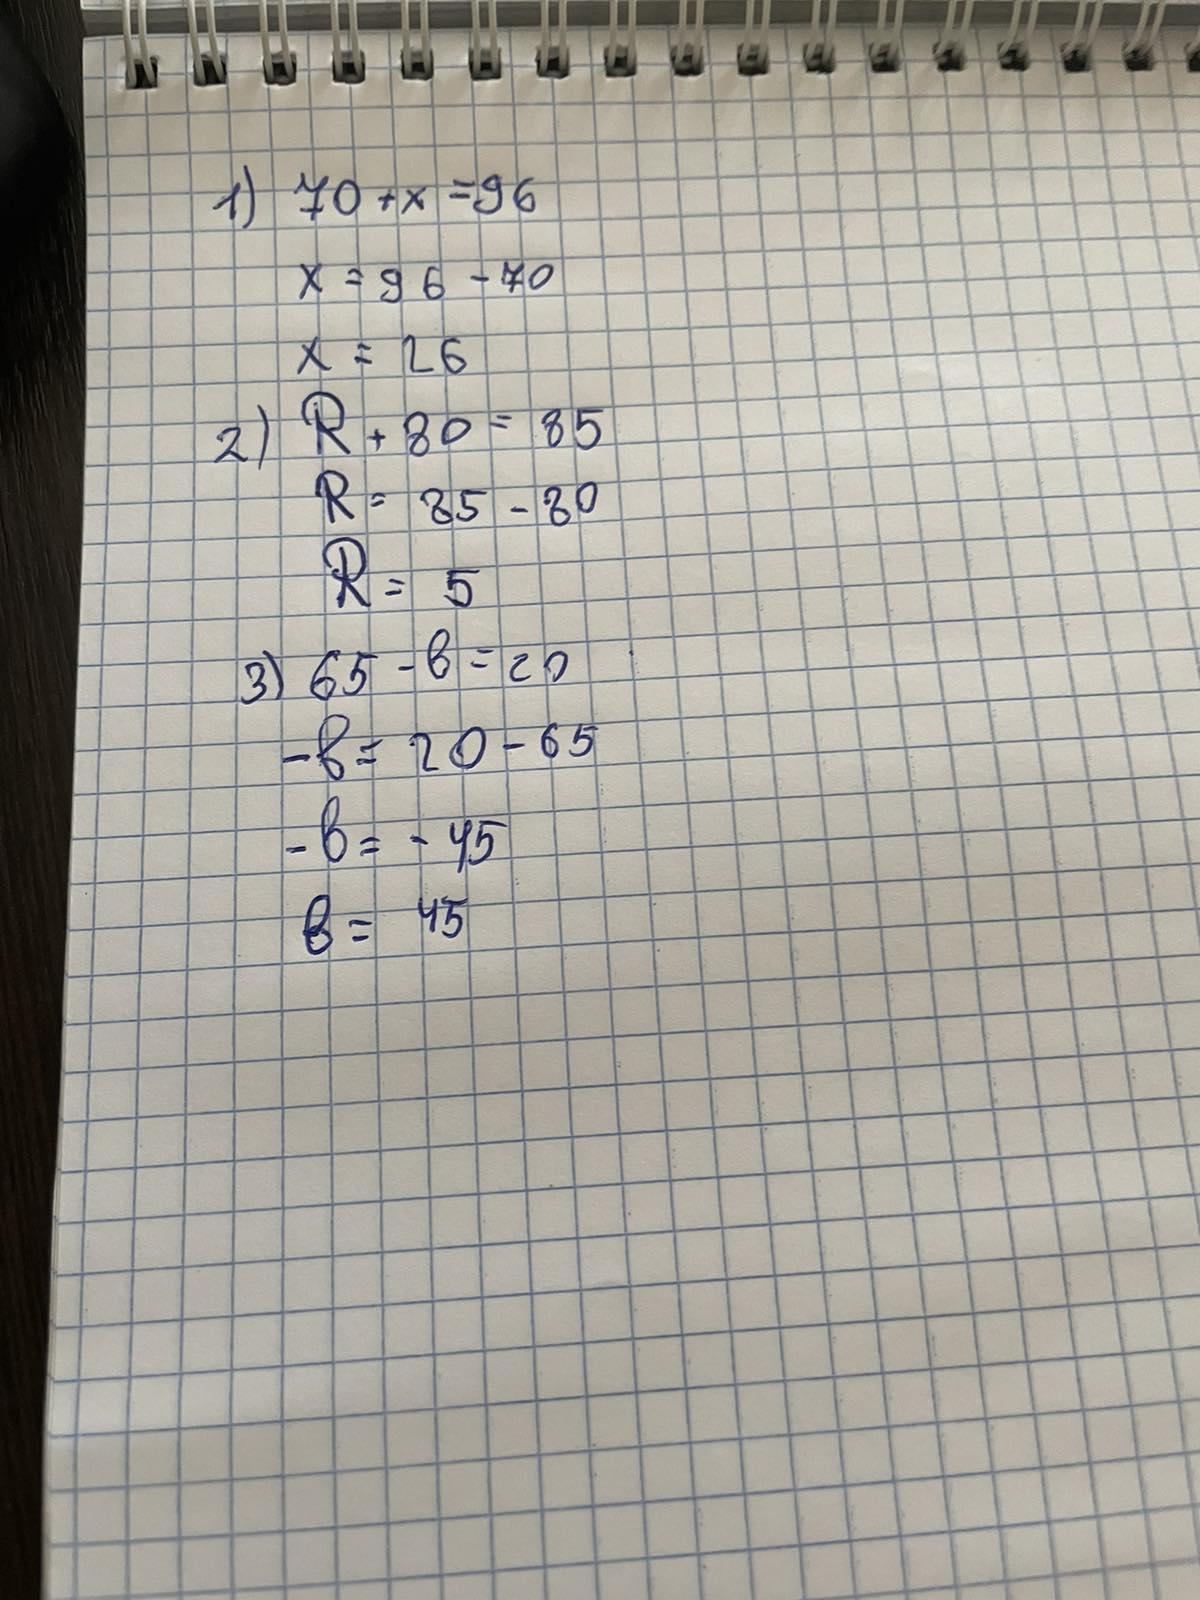 1) 70 + x = 96
x = 96 - 70
x = 26
2) R + 80 = 85
R = 85 - 80
R = 5
3) 65 - в = 20
- в = 20 - 65
- в = - 45
в = 45